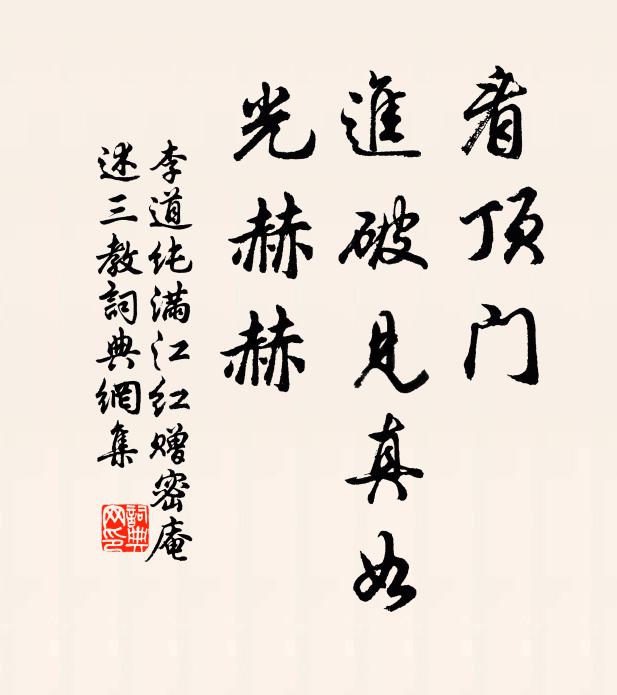 看顶门
進破见真如
光赫赫
李道纯满江红赠密庵
述三教詞典網集
詞典
网印